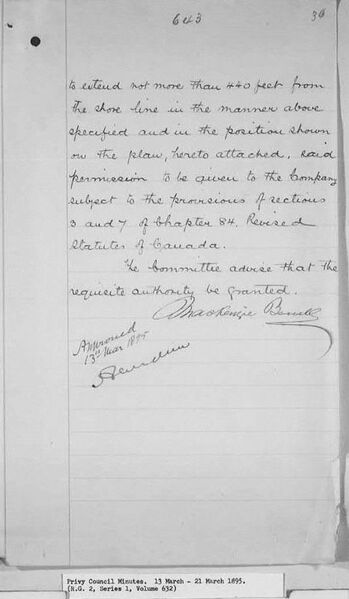 643
36
to extend not more than 440 feet from
the shore line in the manner above
specified and in the position shown
on the plan, hereto attached, said
permission to be given to the Company
subject to the provisions of sections
3 and 7 of Chapter 84. Revised
Statutes of Canada.
The Committee advise that the
requisite authority be granted.
Mackenzie Bowell
Approved
13th Mar 1895
Aberdeen
Privy Council Minutes. 13 March - 21 March 1895.
(R.G. 2, Series 1, Volume 632)